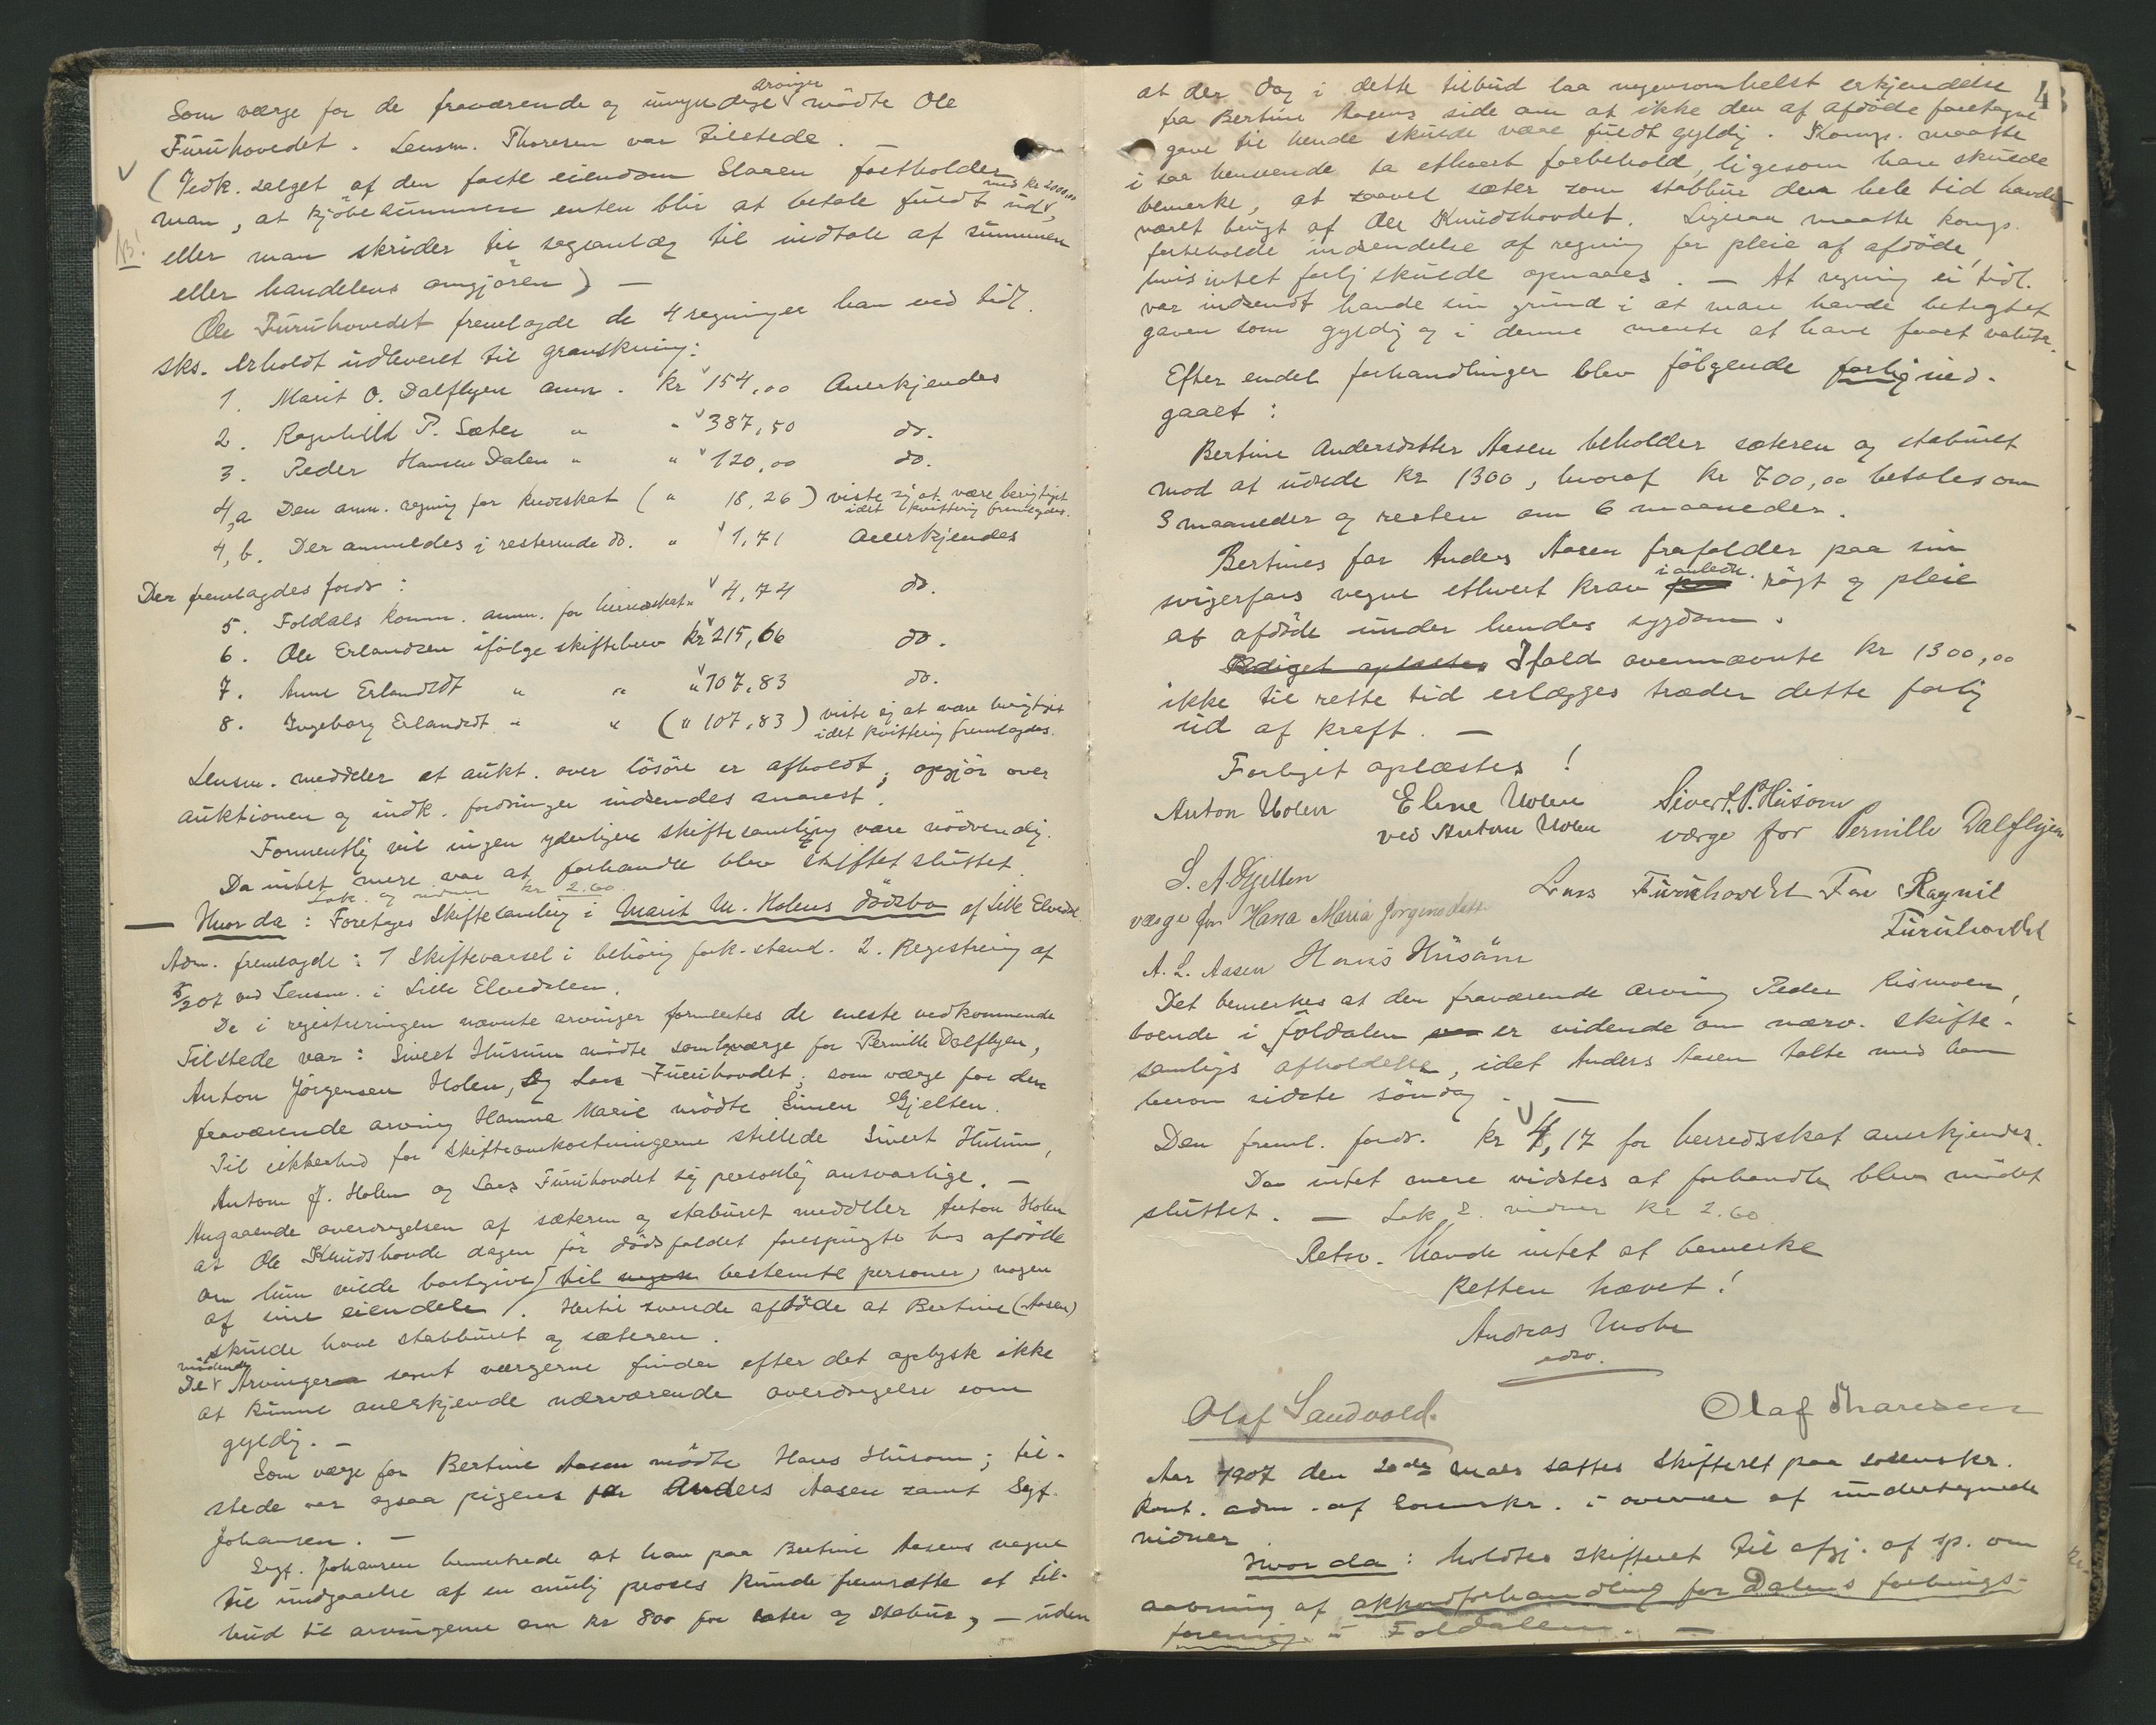 Som værge for de fraværende og umyndige arvinger mödte Ole
Furuhovedet. Lensm. Thoresen var tilstede.
(Vedk. salget af den faste eiendom Slaaen fastholder
man, at kjöbesummen enten blir at betale fuldt ud, med kr 2000,00
NB! eller man skrider til søgsanlæg til indtale af summen
eller handelens omgjören) —
Ole Furuhovedet fremlagde de 4 regninger han ved tidl.
sks. erholdt udleveret til granskning:
1. Marit O. Dalflyen anm. kr 154,00 Anerkjendes
2. Ragnhild P. Sæter " " 387,50 do.
3. Peder Hansen Dalen " " 120,00 do.
4,a Den anm. regning for kudeskat ( " 18,26 ) viste sig at være berigtiget
idet kvittering fremlagdes.
4,b. Der anmeldes i resterende do. " 1,71 Anerkjendes
Der fremlagdes fordr:
5. Foldals komm. anm. for herredskat " 4,74 do.
6. Ole Erlandsen ifölge skiftebrev kr 215,66 do.
7. Anne Erlandsdt " " " 107,83 do.
8. Ingeborg Erlandsdt " " (" 107,83) viste sig at være berigtiget
idet kvittering fremlagdes.
Lensm. meddeler at aukt. over lösöre er afholdt; opgjör over
auktionen og indk. fordringer indsendes snarest.
Formentlig vil ingen yderligere skiftesamling være nödvendig.
Da intet mere var at forhandle blev skiftet sluttet.
Lok. og vidner kr 2.60
— Hvor da: Foretoges Skiftesamling i Marit M. Holens dödsbo af Lille Elvedal
Adm. fremlagde: 1 Skiftevarsel i behörig fork. stand. 2. Registrering af
5/2 07 ved Lensm. i Lille Elvedalen.
De i registreringen nævnte arvinger formentes de eneste vedkommende
Tilstede var: Sivert Husum mödte som værge for Pernille Dalflyen,
Anton Jörgensen Holen, og Lars Furuhovdet; som værge for den
fraværende arving Hanna Marie mödte Simen Gjelten.
Til sikkerhed for skifteomkostningerne stillede Sivert Husum,
Anton J. Holen og Lars Furuhovdet sig personlig ansvarlige. —
Angaaende overdragelsen af sæteren og stabúret meddeler Anton Holen
at Ole Knudshovde dagen för dödsfaldet forespurgte hos afdöde
om hun vilde bortgive (til nogen bestemte personer) nogen
af sine eiendele. Hertil svarede afdöde at Bertine (Aasen)
skulde have stabburet og sæteren.
De mödende Arvinger samt værgerne finder efter det oplyste ikke
at kunne anerkjende nærværende overdragelse som
gyldig. —
Som værge for Bertine Aasen mödte Hans Husom; til-
stede var ogsaa pigens far Anders Aasen samt Sagf.
Johansen. —
Sagf. Johansen bemerkede at han paa Bertine Aasens vegne
til undgaaelse af en mulig proces kunde fremsætte et til-
bud til arvingerne om kr 800 for sæter og stabur, — uden
4
at der dog i dette tilbud laa nogensomhelst erkjendelse
fra Bertine Aasens side om at ikke den af afdöde foretagne
gave til hende skulde være fuldt gyldig. Komp. maatte
i saa henseende ta ethvert forbehold, ligesom han skulde
bemerke, at saavel sæter som stabbur den hele tid havde
været brugt af Ole Knudshovdet. Ligesaa maatte komp.
forbeholde indsendelse af regning for pleie af afdöde,
hvis intet forlig skulde opnaaes. — At regning ei tidl.
var indsendt havde sin grund i at man havde betragtet
gaven som gyldig og i denne mente at have faaet valuta.
Efter endel forhandlinger blev fölgende forlig ind-
gaaet:
Bertine Andersdatter Aasen beholder sæteren og staburet
mod at udrede kr 1300, hvoraf kr 700,00 betales om
3 maaneder og resten om 6 maaneder.
Bertines far Anders Aasen frafalder paa sin
svigerfars vegne ethvert krav i anledn. rögt og pleie
af afdöde under hendes sygdom.
Ifald ovennævnte kr 1300,00
ikke til rette tid erlægges træder dette forlig
ud af kraft. —
Forliget oplæstes!
Anton Holen Eline Holen Sivert P. Husom
ved Anton Holen værge for Pernille Dalflyen
S. A. Gjelten Lars Furuhovdet For Ragnil
værge for Hana Maria Jorgensdatt Furuhovdet
A. L. Aasen Hans Husöm
Det bemerkes at den fraværende arving Peder Rismoen,
boende i Foldalen er vidende om nærv. skifte-
samlings afholdelse, idet Anders Aasen talte med ham
herom sidste söndag. —
Den freml. fordr. kr 4,17 for herredsskat anerkjendes.
Da intet mere vidstes at forhandle blev mödet
sluttet. — Lok. & vidner kr 2.60
Retsv. havde intet at bemerke
Retten hævet!
Andreas Mohr
edsv.
Olaf Sandvold. Olaf Thoresen
Aar 1907 den 20de Mars sattes Skifteret paa sorenskr.
kont. adm. af Sorenskr. i overvær af undertegnede
vidner
Hvor da: holdtes skifteret til afgj. af sp. om
aabning af akkordforhandling for Dalens forbrugs-
forening i Foldalen. —